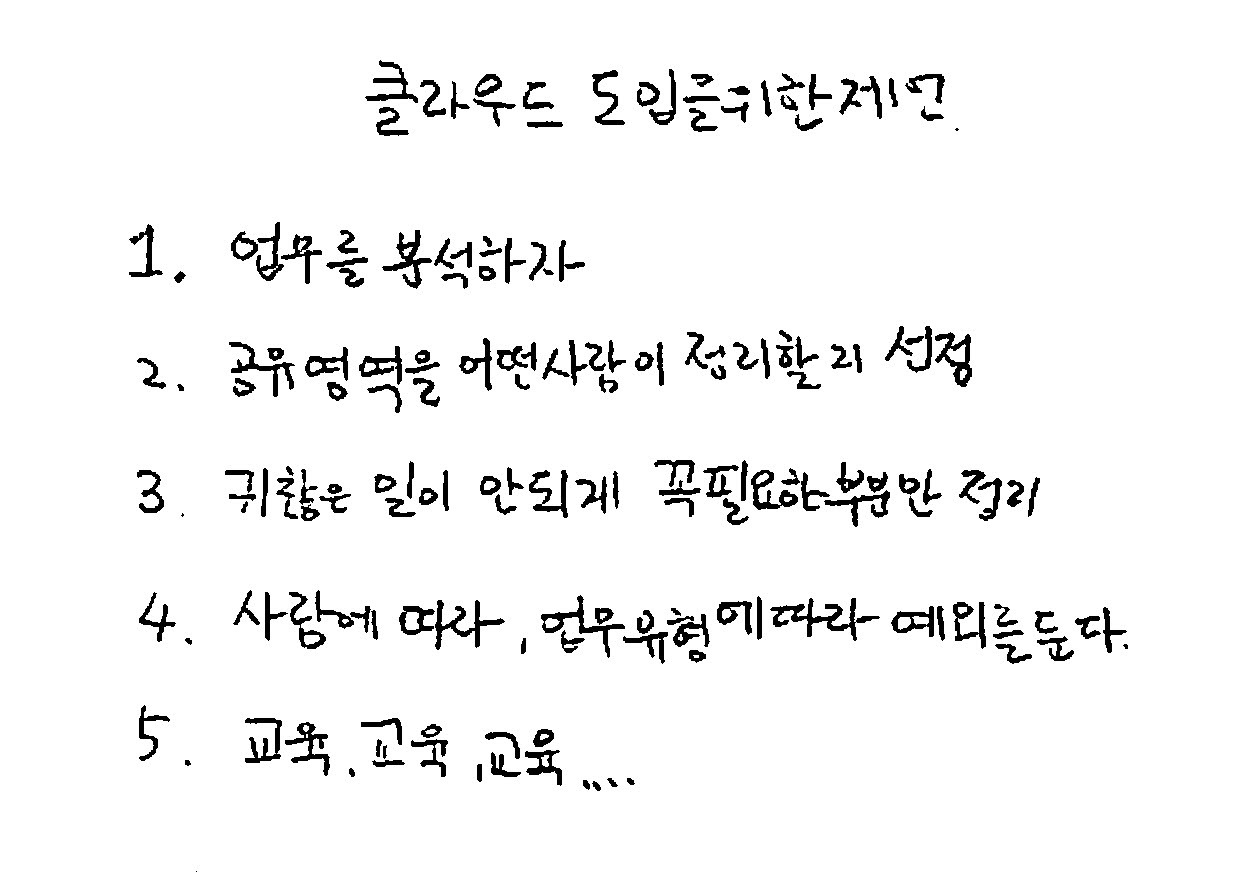 클라우드 도입를위한제언.
1. 업무를 분석하자
2. 공유영역을 어떤사람이 정리할리 선정
3. 귀찮은 일이 안되게 꼭필요한부분만 정리
4. 사람에 따라, 업무유형에따라 예외를둔다.
5. 교육, 교육, 교육....